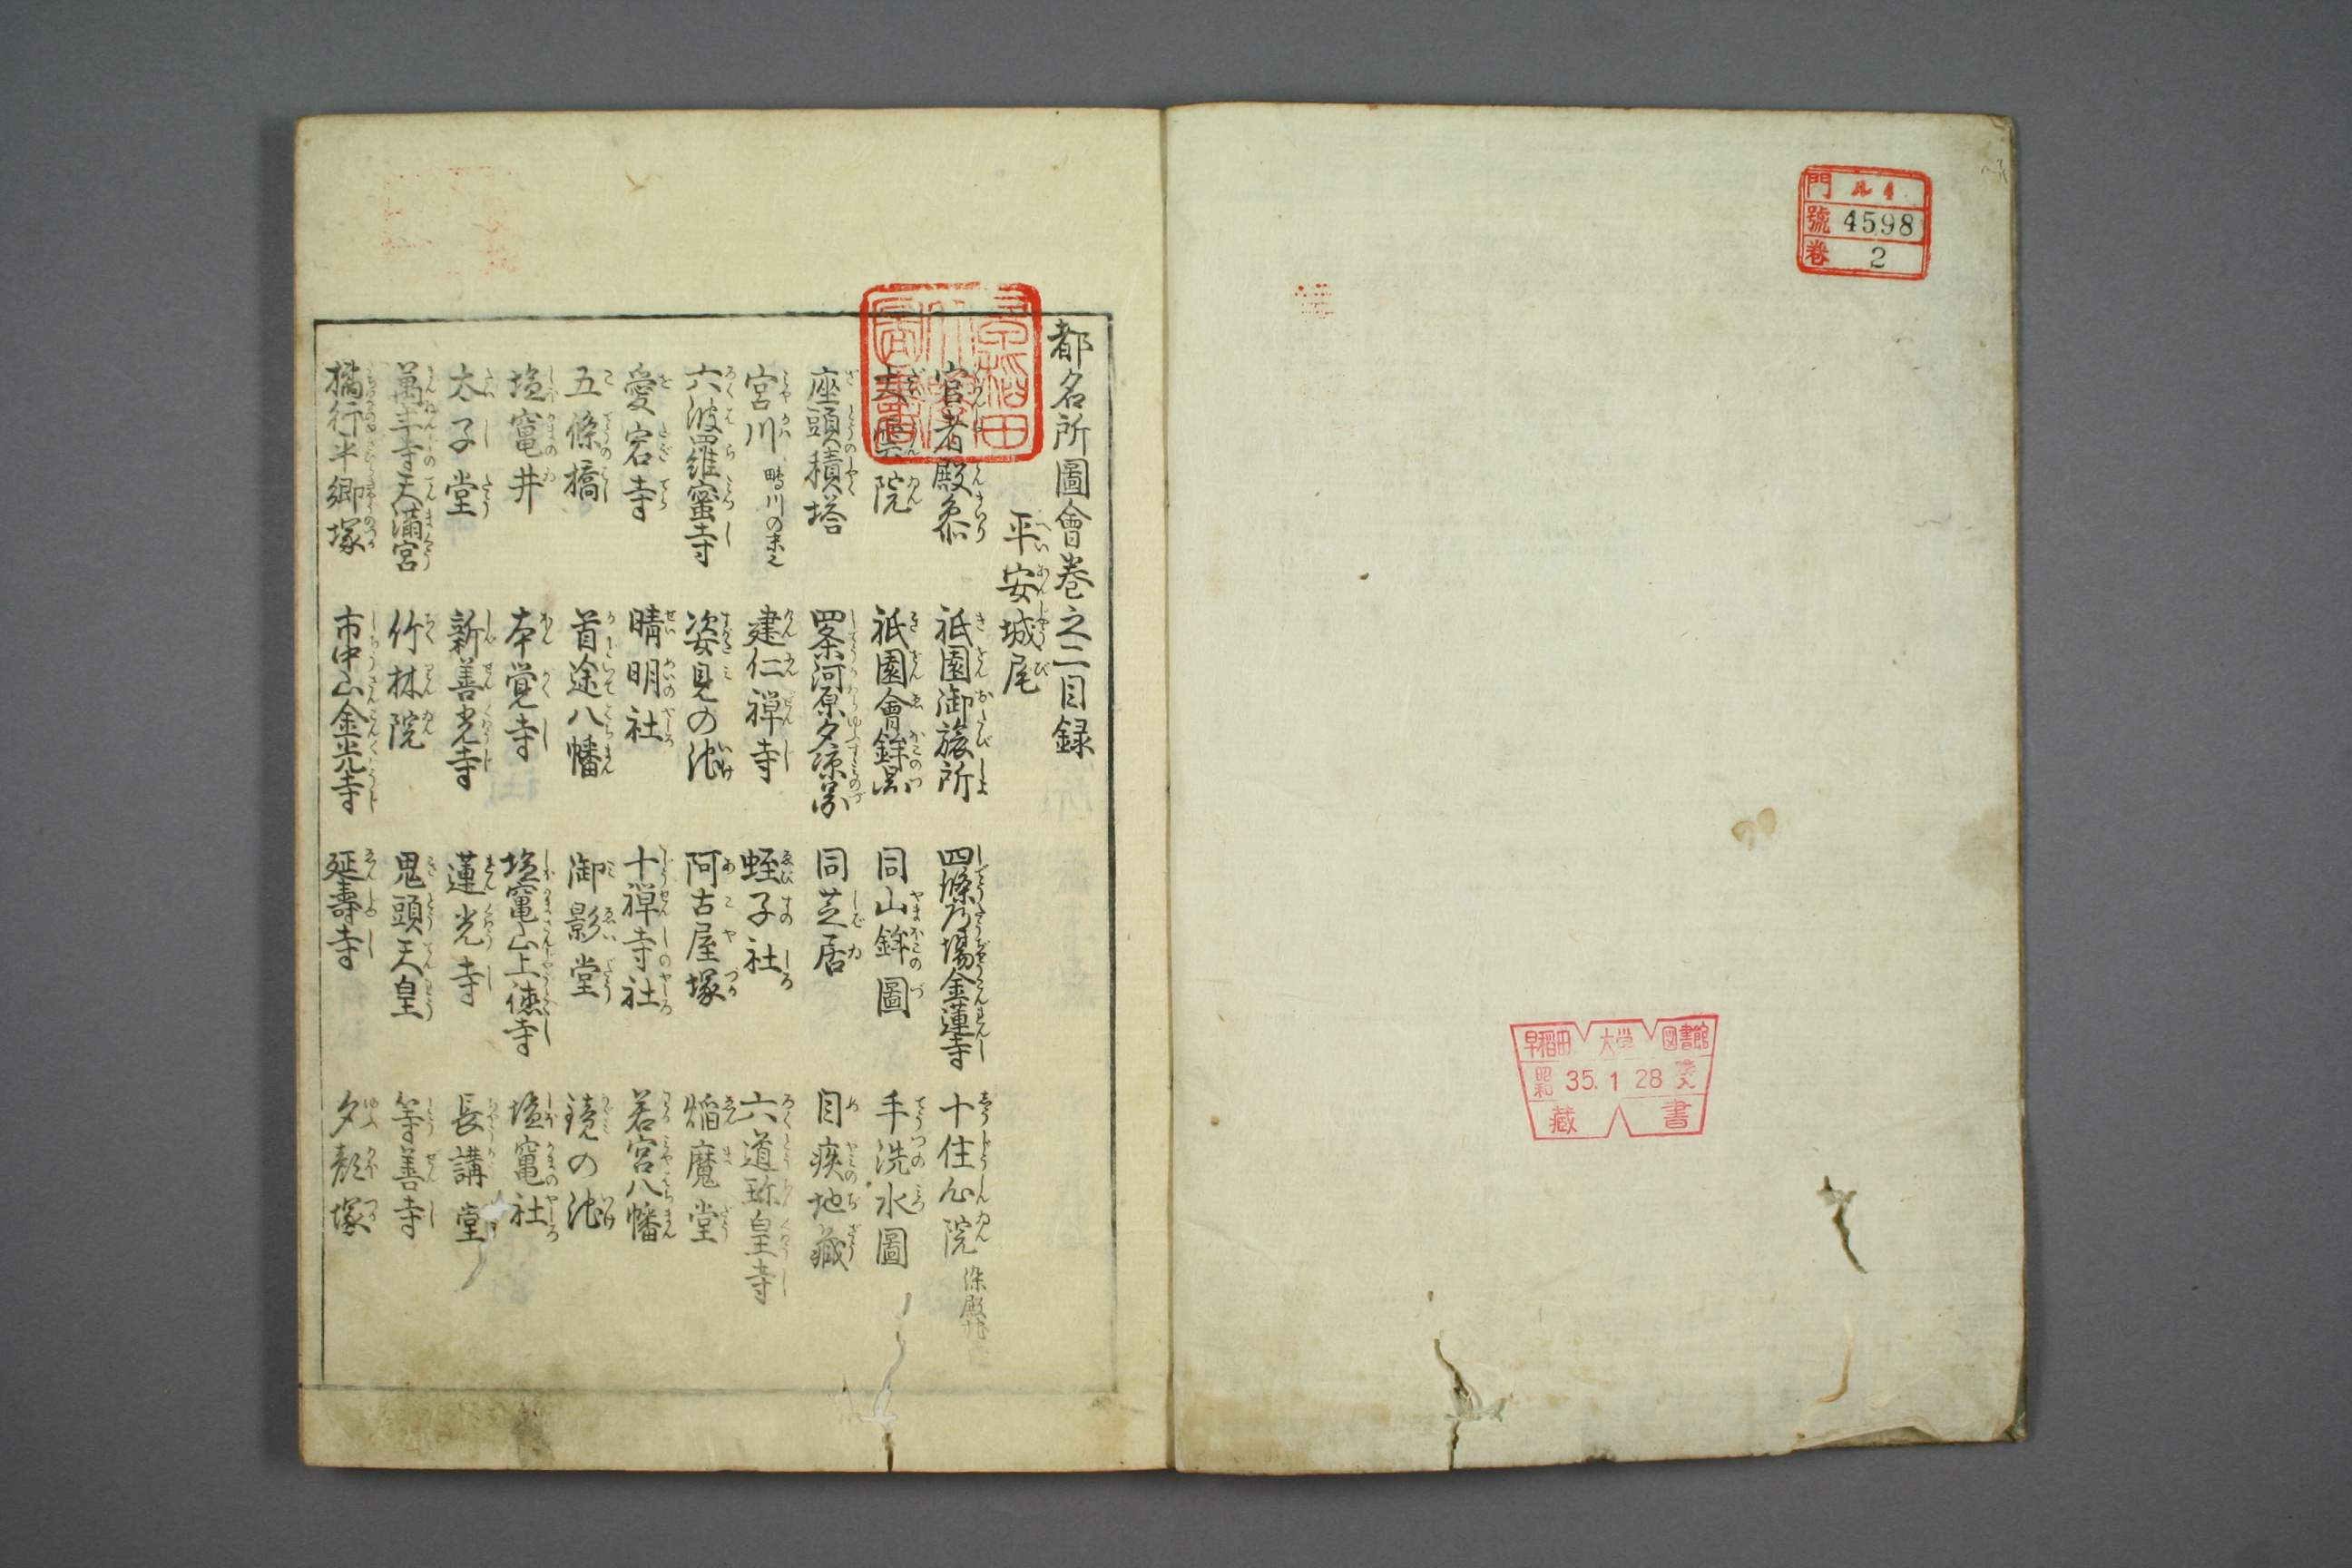 門 ル4
號 4598
卷 2
早稲田大学図書館
昭和 35.1 28
蔵書
都名所圖會巻之二目録
平安城尾
官者殿参 祇園御旅所 四條乃場金蓮寺 十住心院 染殿
大雲院 祇園會鉾 同山鉾圖 手洗水圖
座頭積塔 四条河原夕涼 同芝居 目疾地蔵
宮川 鴨川の末也 建仁禅寺 蛭子社 六道珍皇寺
六波羅蜜寺 姿見の池 阿古屋塚 焔魔堂
愛宕寺 晴明社 十禅寺社 若宮八幡
五條橋 首途八幡 御影堂 鏡の池
塩竈井 本覚寺 塩竈山上徳寺 塩竈社
太子堂 新善光寺 蓮光寺 長講堂
萬年寺天満宮 竹林院 鬼頭天皇 等善寺
橘行平卿塚 市中山金光寺 延壽寺 夕顔塚